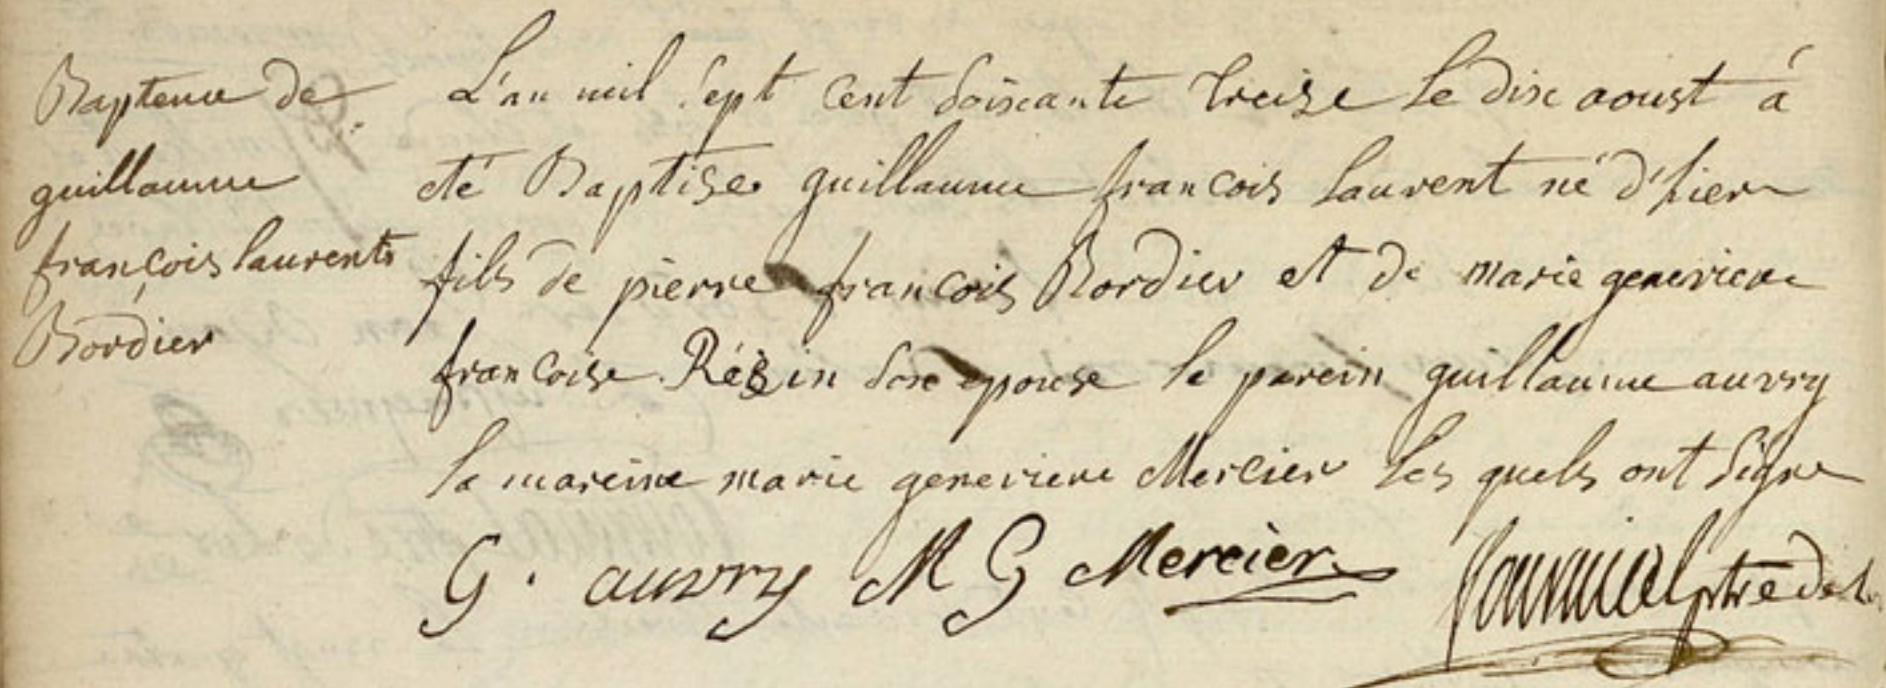 Bapteme de
guillaume
françois laurents
Bordier
L'an mil sept cent soixante treize le dix aoust à
eté Baptise guillaume francois laurent né d'hier
fils de pierre francois Bordier et de marie genevieve
francoise Rézin son epouse le parein guillaume auvry
la mareine marie genevieve Mercier les quels ont signe
G. auvry M G Mercier ptre de